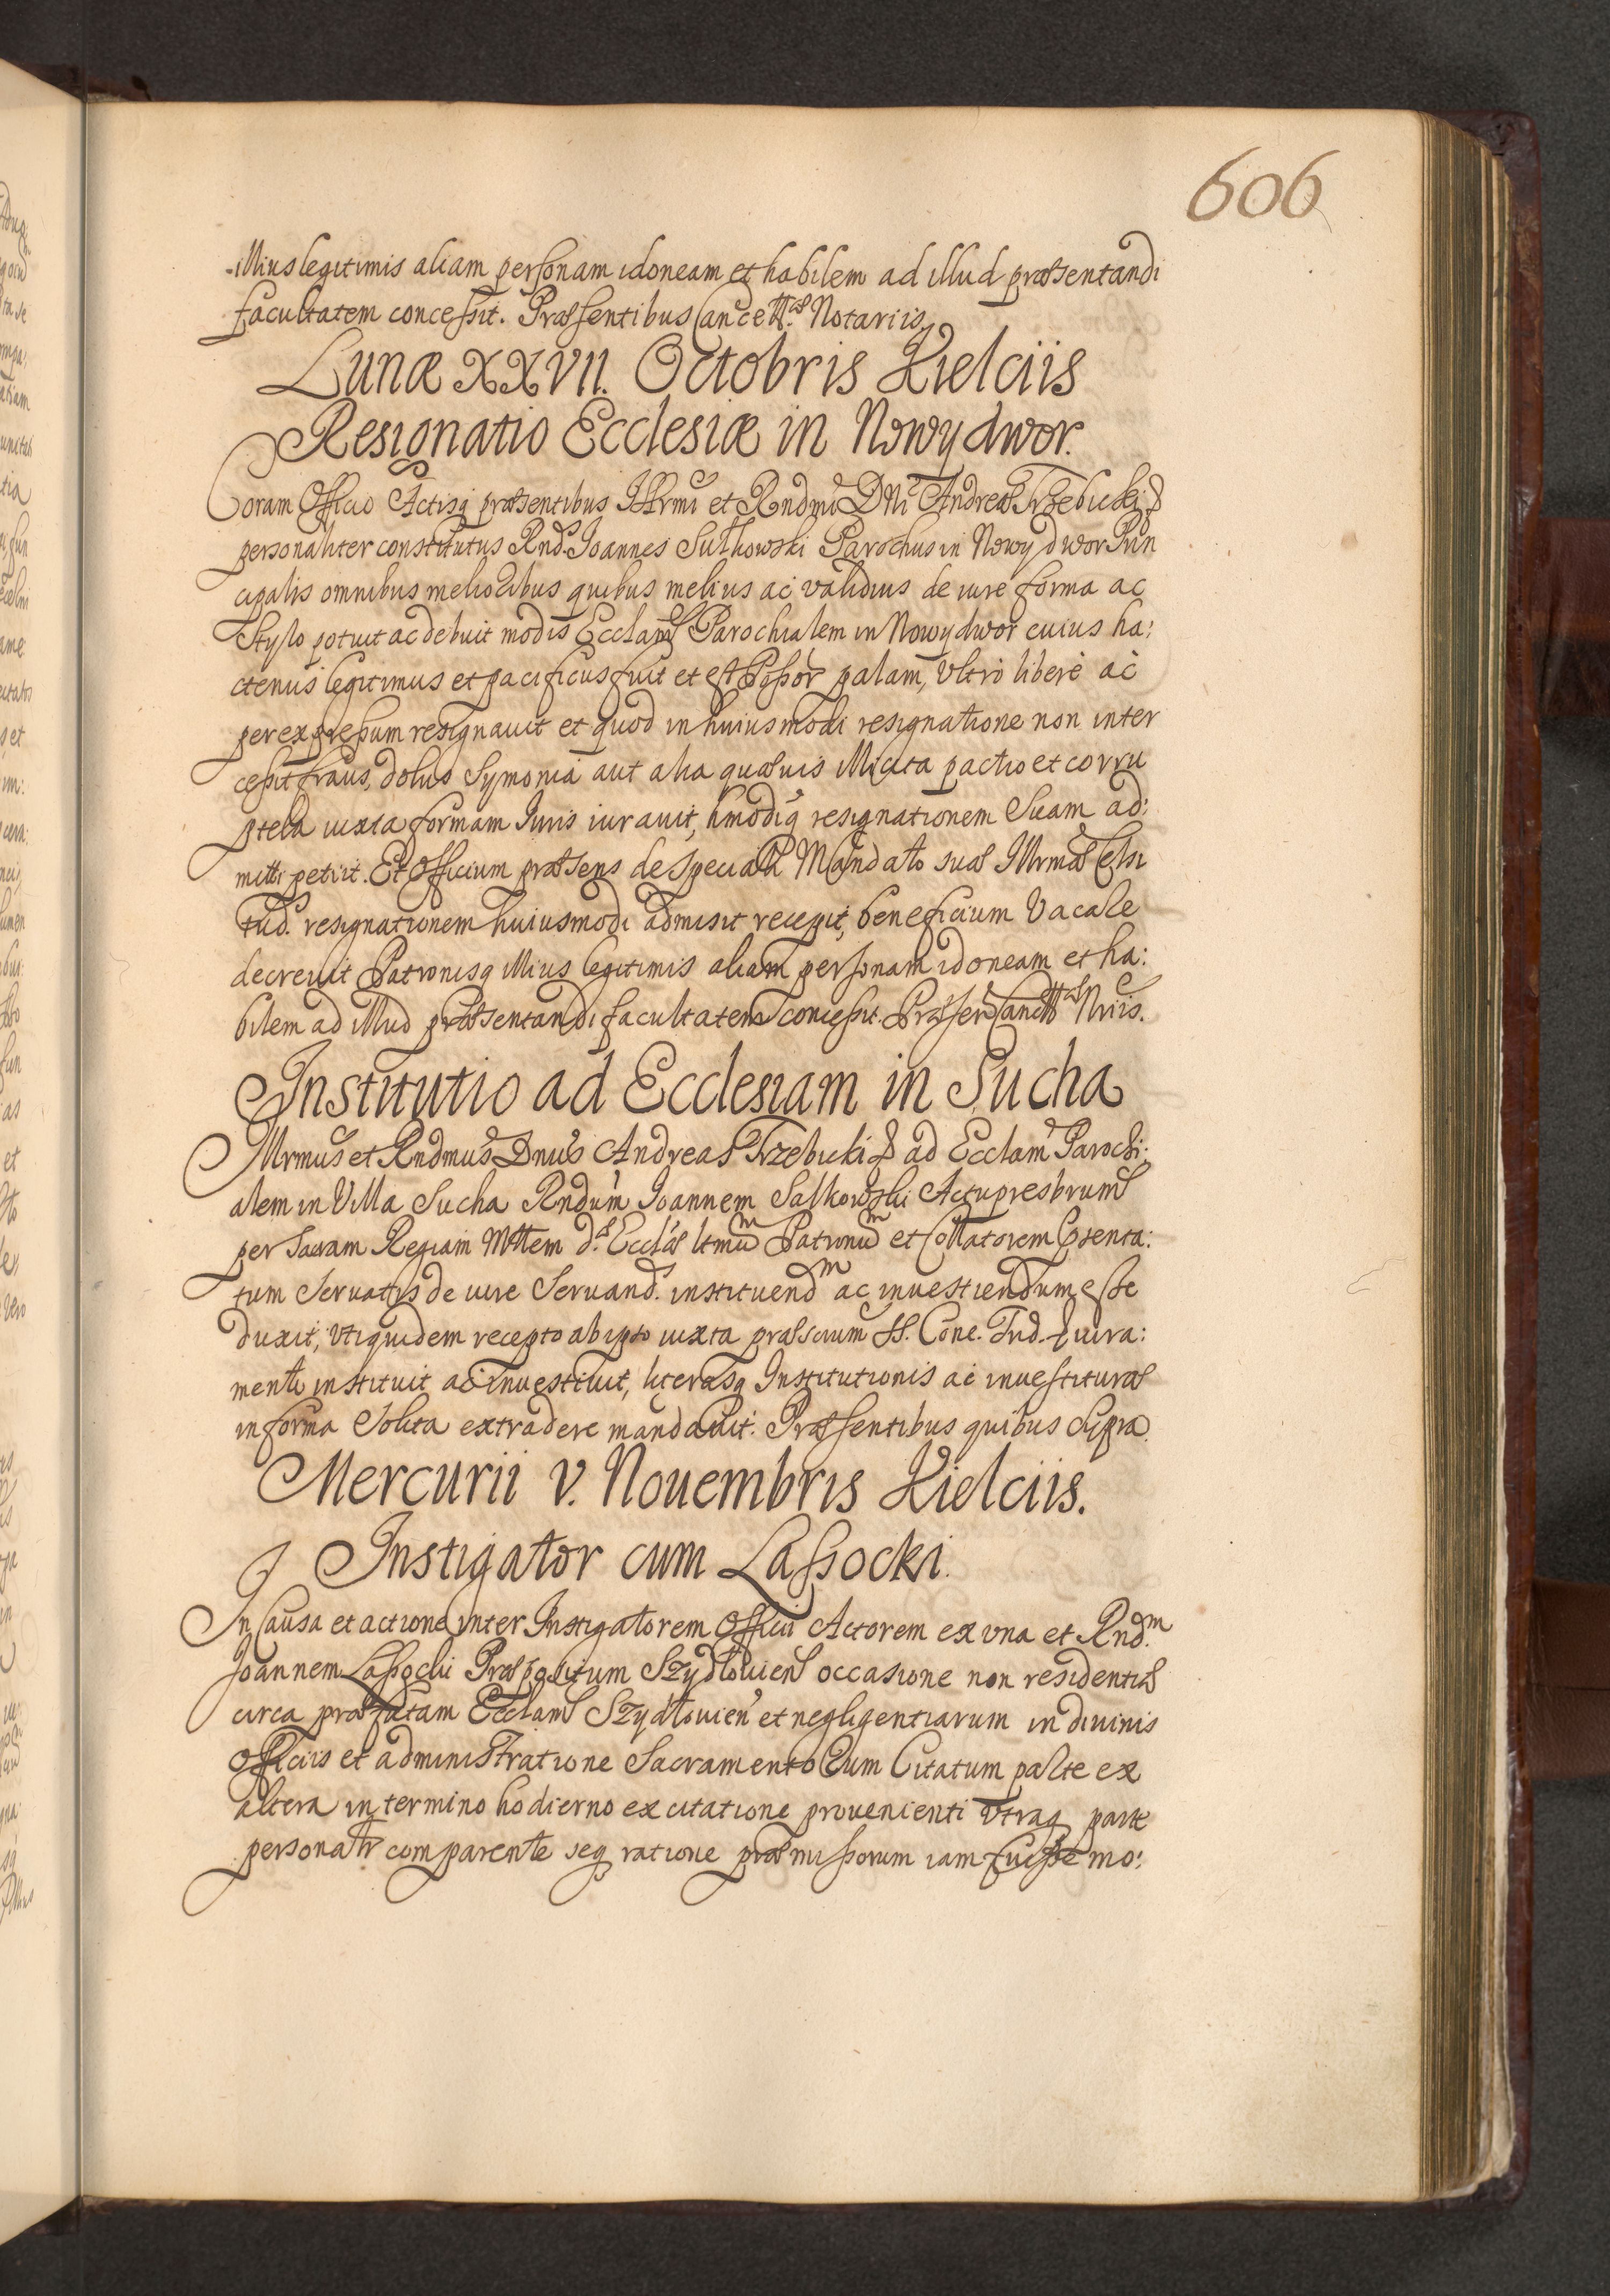 606
illius legitimis aliam personam idoneam et habilem ad illud præsentandi
facultatem concessit. Præsentibus Cancellæ Notariis
Lunæ XXVII. Octobris Kielciis
Resignatio Ecclesiæ in Nowydwor.
Coram Officio Actisq præsentibus Illrmi et Rndmi Dni Andreæ Trzebicki &
personaliter constitutus Rnds. Joannes Sulkowski Parochus in Nowydwor Prin
cipalis omnibus melioribus quibus melius ac validius de iure forma ac
stylo potuit ac debuit modis Ecclam Parochialem in Nowydwor cuius ha:
ctenus legitimus et pacificus fuit et est Possor palam, Ultro libere ac
per expressum resignauit et quod in huiusmodi resignatione non inter
cessit fraus, dolus Symonia aut alia quævis illicita pactio et corru
ptela iuxta formam Iuris iurauit, hmodiq resignationem Suam ad:
mitti petiit. Et Officium præsens de speciali Mandato suæ Illrmæ Celsi
tud. resignationem huiusmodi admisit recepit, beneficium Vacare
decreuit Patronisq illius legitimis aliam personam idoneam et ha:
bilem ad illud præsentandi facultatem concessit. Præsen Cancllæ Nriis.
Institutio ad Ecclesiam in Sucha
Illrmus et Rndmus Dnus Andreas Trzebicki & ad Ecclam Parochi:
alem in Villa Sucha Rndum Joannem Salkowski Actu presbrum
per Sacram Regiam Mttem d. Ecclæ ltmum Patronum et Collatorem Psenta:
tum Servatis de iure Servand. instituendm ac inuestiendum esse
duxit, Utiquidem recepto ab ipso iuxta præscrium SS. Conc. Trid. & iura:
mento instituit ac inuestiuit, literasq Institutionis ac inuestituræ
in forma Solita extradere mandauit. Præsentibus quibus supra
Mercurii V. Nouembris Kielciis.
Instigator cum Lassocki.
In Causa et actione inter Instigatorem Officii Actorem ex una et Rnd.m
Joannem Lassocki Præpositum Szydlouien occasione non residentiæ
circa præfatam Ecclam Szydlouien et negligentiarum in diuinis
Officiis et administratione Sacramentorum Citatum parte ex
altera in termino hodierno ex citatione prouenienti Utraq parte
personalr comparente seq ratione præmissorum iam fuisse mo: